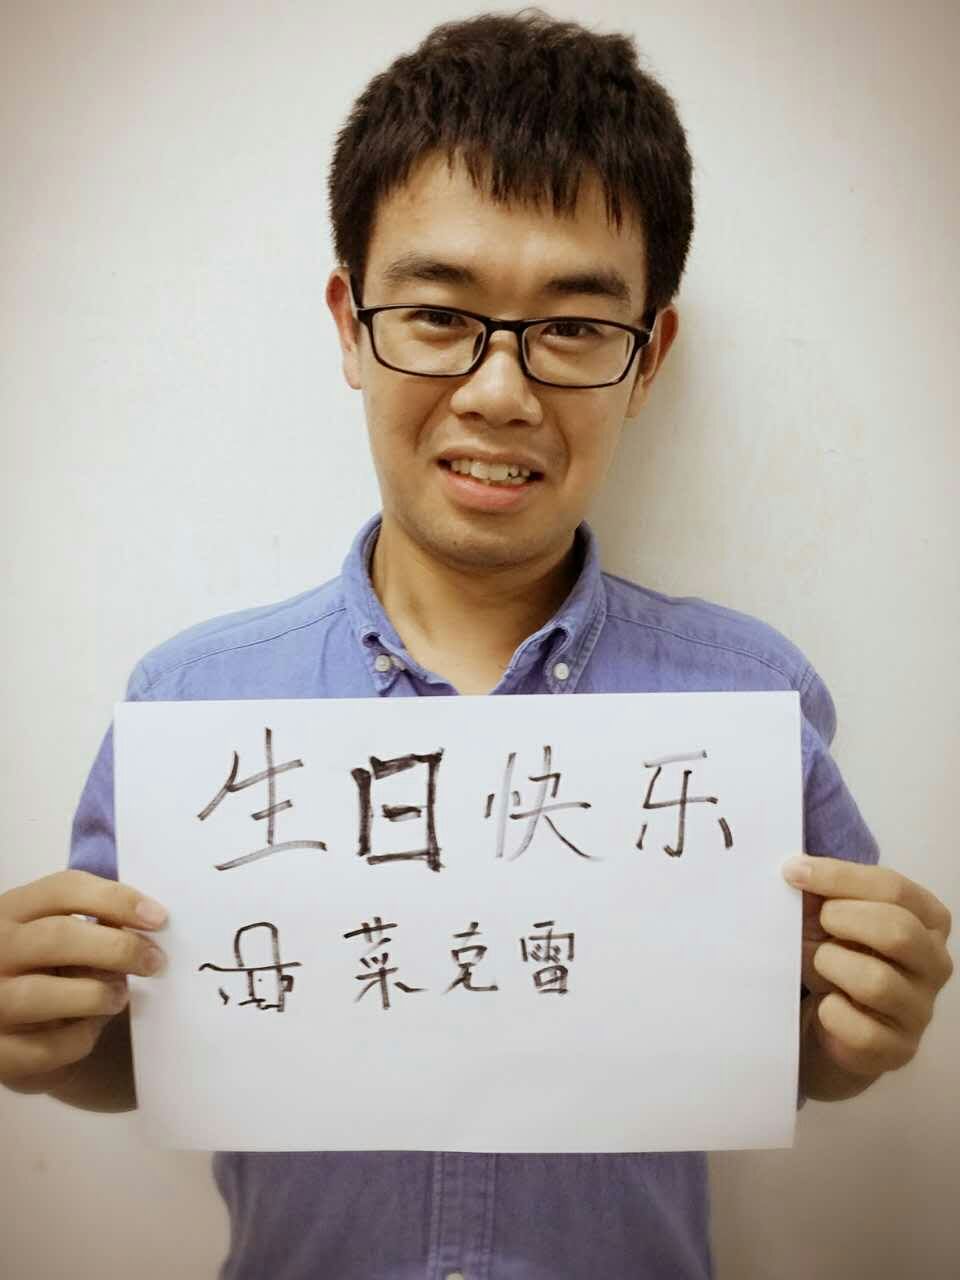 生日快乐
菜克雷